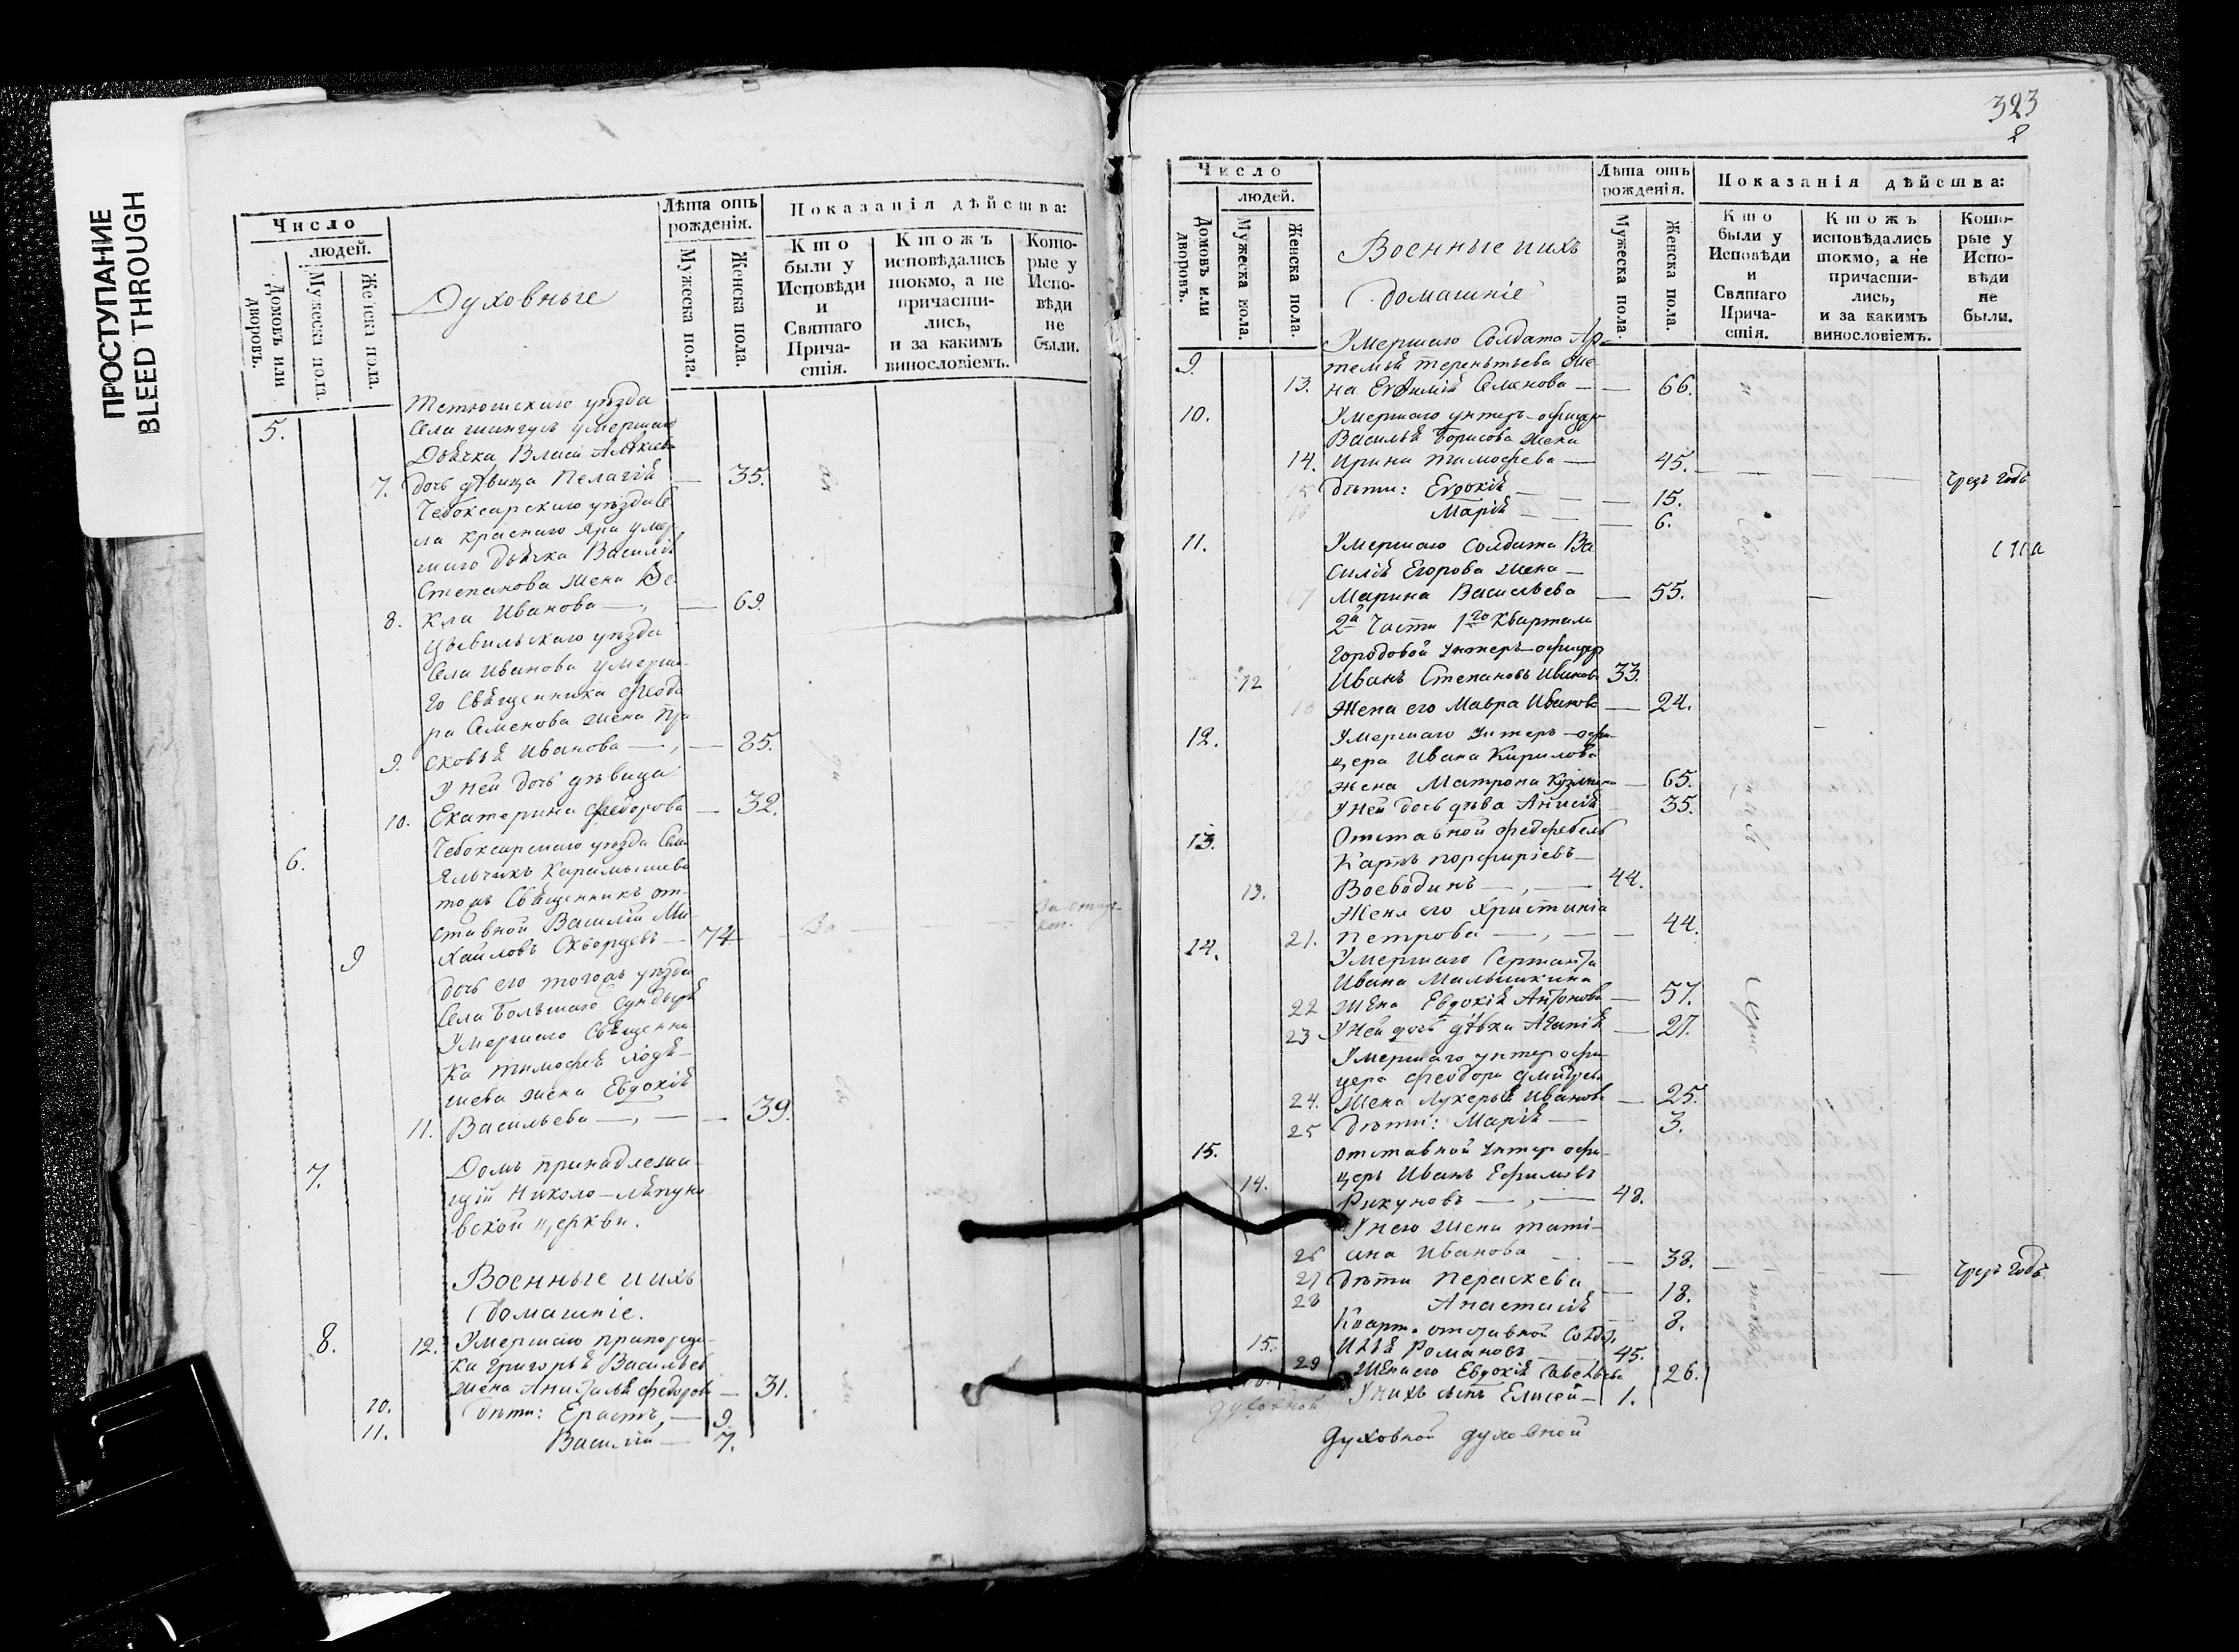 ПРОСТУПАНИЕ
BLEED THROUGH
Число
людей.
Домовъ или дворовъ.
Мужеска пола.
Женска пола.
Духовные
Лѣта отъ рожденія.
Мужеска пола.
Женска пола.
Показанія дѣйства:
Кто были у Исповѣди и Святаго Причастія.
Ктожъ исповѣдались токмо, а не причастились, и за какимъ винословіемъ.
Которые у Исповѣди не были.
5. Тетюшскаго уѣзда
села шингусъ умершаго
Дьячка Власа
7. дочь дѣвица Пелагія — 35.
Чебоксарскаго уѣзда се
ла краснаго Яра умер
шаго дьячка Василія
Степанова жена Ѳе
8. кла Иванова — 69.
Цывильскаго уѣзда
Села Иванова умерша
го Священника Ѳеодо
ра Семенова жена Пра
9. сковья Иванова — 85.
У ней дочь дѣвица
10. Екатерина Федорова — 32.
6. Чебоксарскаго уѣзда Села
Яльчикъ Карамышево
тожъ Священникъ от
ставной Василій Ми
9 хайловъ Скворцевъ — 74
дочь его тогожъ уѣзда
Села Большаго Сундыря
Умершаго Священни
ка тимофея
шева жена Евдокія
11. Васильева — 39.
7. Домъ принадлежа
щій Николо-
вской церкви.
Военные и ихъ
домашніе.
8. 12. Умершаго прапорщи
ка Григорья Васильев
жена Федорова — 31.
10. дѣти: Ерастъ, — 9.
11. Василій — 7.
323
2
Число
людей.
Домовъ или дворовъ.
Мужеска пола.
Женска пола.
Военные и ихъ
домашніе
Лѣта отъ рожденія.
Мужеска пола.
Женска пола.
Показанія дѣйства:
Кто были у Исповѣди и Святаго Причастія.
Ктожъ исповѣдались токмо, а не причастились, и за какимъ винословіемъ.
Которые у Исповѣди не были.
Умершаго Солдата Ар
9. темья терентьева же
13. на Семенова — 66.
10. Умершаго унтеръ-офицер
Василья Борисова жена
14. Ирина тимофеева — 45. чрезъ годъ
15 дѣти: Евдокія — 15.
16 Марія — 6.
11. Умершаго солдата Ва
силія Егорова жена —
17 Марина Васильева — 55.
2й Части 1го Квартала
городовой унтеръ-офицер
12 Иванъ Степановъ Иванов 33.
18 Жена его Мавра Иванова — 24.
12. Умершаго унтеръ-офи
цера Ивана Кирилова
19 жена Матрона Кузмина — 65.
20 У ней дочь дѣва Анисія 35.
13. Отставной федфебель
Карпъ порфиріевъ —
13. Воеводинъ — 44.
Жена его Христинія
21. петрова — 44.
14. Умершаго Сержанта
Ивана Малышкина
22 жена Евдокія Антонова — 57.
23 У ней дочь дѣвка Агапія — 27.
Умершаго унтер офи
цера Феодора Дмитрева
24. Жена Лукерья Иванова — 25.
25 дѣти: Марія — 3.
15. отставной унтер офи
14. церъ Иванъ Ефимовъ
Рикуновъ — 48.
У него жена тати
26 ана Иванова — 38. чрезъ годъ
27 дѣти Параскева — 18.
28 Анастасія 8.
Кварт. отставной Солдат
15. Илья Романовъ 45.
29 Жена его Евдокія Савельева 26.
У нихъ сынъ Елисей — 1.
духовной
духовной духовной